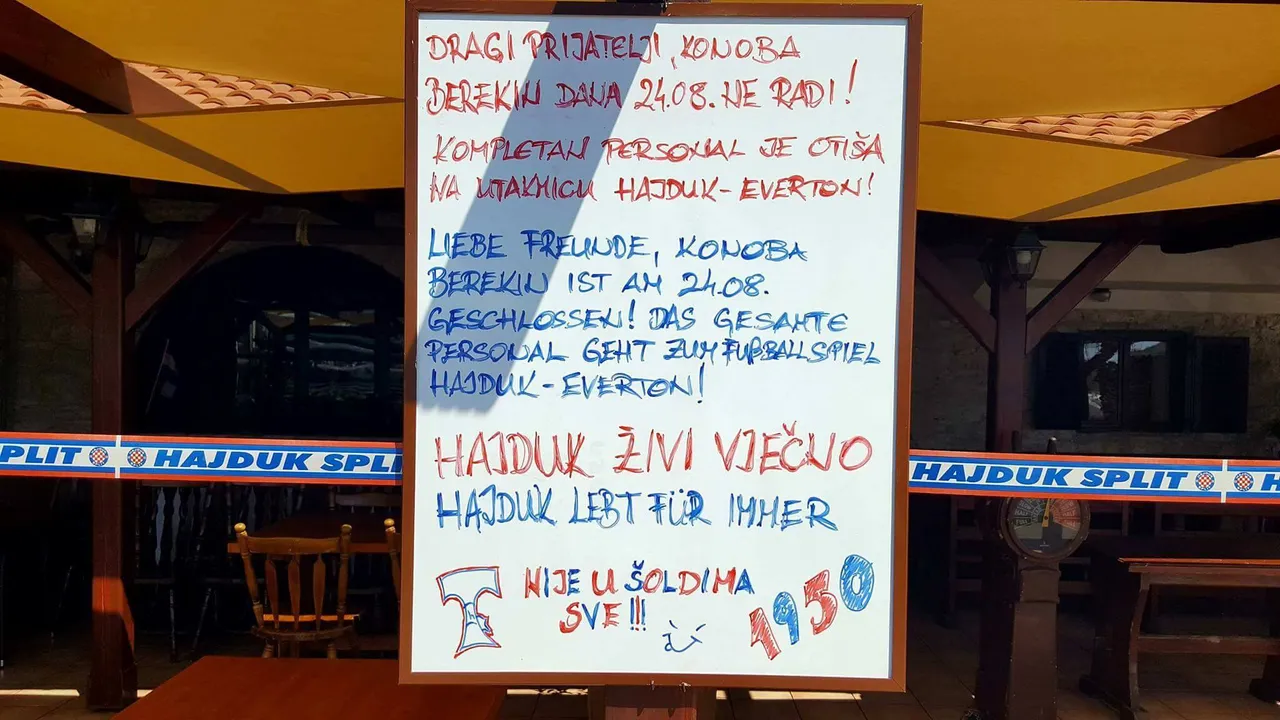 DRAGI PRIJATELJI, KONOBA
BEREKIN DANA 24.08. NE RADI!
KOMPLETAN PERSONAL JE OTIŠA
NA UTAKMICU HAJDUK-EVERTON!
LIEBE FREUNDE, KONOBA
BEREKIN IST AM 24.08.
GESCHLOSSEN! DAS GESAMTE
PERSONAL GEHT ZUM FUßBALLSPIEL
HAJDUK-EVERTON!
PLIT HAJDUK SPLI
HAJDUK SPLIT H
HAJDUK ŽIVI VJEČNO
HAJDUK LEBT FÜR IMMER
T NIJE U ŠOLDIMA
SVE!!!
1950